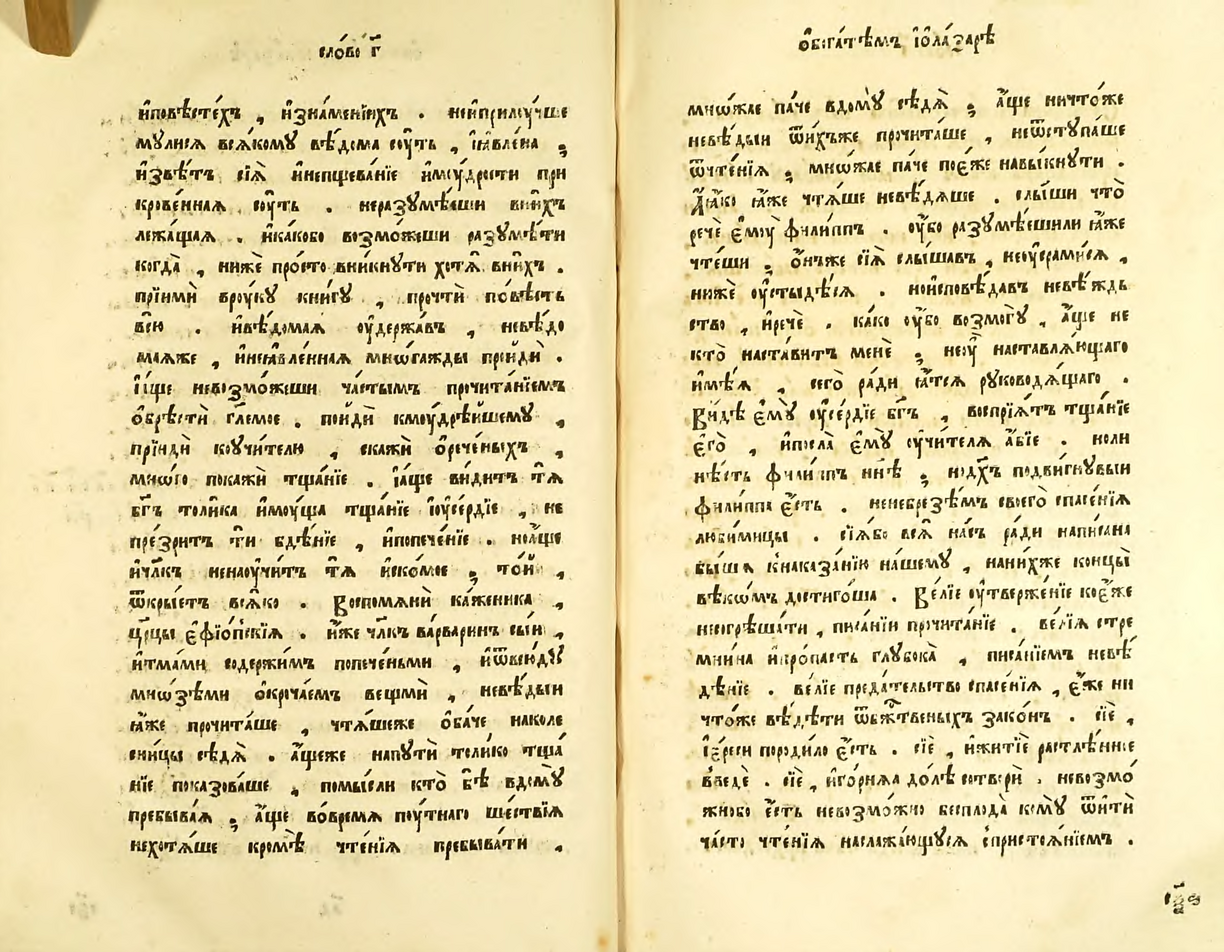 сло́во г҃
и҆повѣ́стехъ , и҆зна́менїихъ . неи҆прилꙋ́чше
мꙋ́лисѧ всѧ́комꙋ вѣ́дома сꙋ́ть , ꙗ҆вле́на ;
и҆звѣ́тъ сїѧ̀ и҆непщева́нїе и҆мꙋ́дрости при
крове́нная сꙋ́ть . неразꙋмѣ́еши вни́хъ
лежа́щая . и҆ка́кобо возмо́жеши разꙋмѣ́ти
когда̀ , нижѐ про́сто вни́кнꙋти хотѧ̀ вни́хъ .
прїимѝ врꙋ́кꙋ кни́гꙋ , прочтѝ по́вѣсть
всю̀ . и҆вѣ́домая ᲂу҆держа́въ , невѣ́до
маяже , и҆неꙗ҆вле́нная мно́гажды прои҆дѝ .
и҆а҆́ще невозмо́жеши ча́стымъ прочита́нїемъ
ѡ҆брѣстѝ гл҃емое . пои҆дѝ кмꙋдрѣ́йшемꙋ ,
прїидѝ коꙋчи́телю , скажѝ ѡ҆рече́ныхъ ,
мно́го покажѝ тща́нїе . и҆а҆́ще ви́дитъ тѧ̀
бг҃ъ толи́ка и҆мꙋ́ща тща́нїе и҆ᲂу҆се́рдїе , не
пре́зритъ тѝ бдѣ́нїе , и҆попече́нїе . но а҆́ще
и҆чл҃къ ненаꙋчи́тъ тѧ̀ и҆ско́мое ; то́й ,
ѿкры́етъ всѧ́ко . Воспомѧнѝ ка́женика ,
цр҃цы є҆фїо́пскїѧ . и҆́же чл҃къ ва́рваринъ сы́й ,
и҆тма́ми содержи́мъ попече́ньми , и҆ѿвсю́дꙋ
мно́зѣми ѡ҆крꙋча́емъ вещмѝ , невѣ́дый
ꙗ҆́же прочита́ше , чтѧ́шеже ѻ҆ба́че наколе
сни́цы сѣдѧ̀ . а҆́щеже напꙋтѝ толи́ко тща́
нїе показо́ваше , помы́сли кто̀ бѣ̀ вдомꙋ̀
пребыва́ѧ ; а҆́ще во́время пꙋ́тнаго ше́ствїѧ
нехотѧ́ше кромѣ̀ чте́нїѧ пребыва́ти .
ѡ҆бога́тѣмъ и҆ѡ҆ла́зарѣ
мно́жае па́че вдомꙋ̀ сѣдѧ̀ ; а҆́ще ничто́же
невѣ́дый ѿни́хъже прочита́ше , неѿстꙋпа́ше
ѿчте́нїѧ ; мно́жае па́че по́еже навы́кнꙋти .
Ꙗ҆́ко ꙗ҆́же чтѧ́ше невѣ́дѧше . слы́ши что̀
речѐ є҆мꙋ̀ фили́ппъ . ᲂу҆́бо разꙋмѣ́ешили ꙗ҆́же
чте́ши ; ѻ҆́нъже сїѧ̀ слы́шавъ , неᲂу҆срами́сѧ ,
нижѐ ᲂу҆стыдѣ́сѧ . но и҆сповѣ́давъ невѣ́ждь
ство , и҆речѐ . ка́ко ᲂу҆́бо возмогꙋ̀ , а҆́ще не
кто̀ наста́витъ менѐ ; неꙋ̀ наставлѧ́ющаго
и҆мѣ́ѧ , сего̀ ра́ди ꙗ҆́тсѧ рꙋководѧ́щаго .
Ви́дѣ є҆мꙋ̀ ᲂу҆се́рдїе бг҃ъ , воспрїѧ́тъ тща́нїе
є҆го̀ , и҆посла̀ є҆мꙋ̀ ᲂу҆чи́телѧ а҆́бїе . но ли
нѣ́сть фили́ппъ нн҃ѣ ; но дх҃ъ подви́гнꙋвый
фили́ппа є҆́сть . ненебрезѣ́мъ своего̀ спасе́нїѧ
люби́мицы . сїѧ́бо всѧ̀ на́съ ра́ди напи́сана
бы́шѧ кнаказа́нїю на́шемꙋ , нани́хже концы̀
вѣкѡ́мъ достиго́ша . Ве́лїе ᲂу҆твержє́нїе ко є҆́же
несогрѣша́ти , писа́нїи прочита́нїе . ве́лїѧ стре
мни́на и҆про́пасть глꙋбока̀ , писа́нїемъ невѣ́
дѣнїе . ве́лїе преда́тельство спасе́нїѧ , є҆́же ни
что́же вѣ́дѣти ѿбж҃твеныхъ зако́нъ . сїѐ ,
є҆́реси породи́ло є҆́сть . сїѐ , и҆житїѐ растлѣ́нное
введѐ . сїѐ , и҆го́рняа до́лѣ сотворѝ , невозмо́
жнобо є҆́сть невозмо́жно беспло́да комꙋ̀ ѿитѝ
ча́сто чте́нїѧ наслажа́ющꙋсѧ спристоѧ́нїемъ .